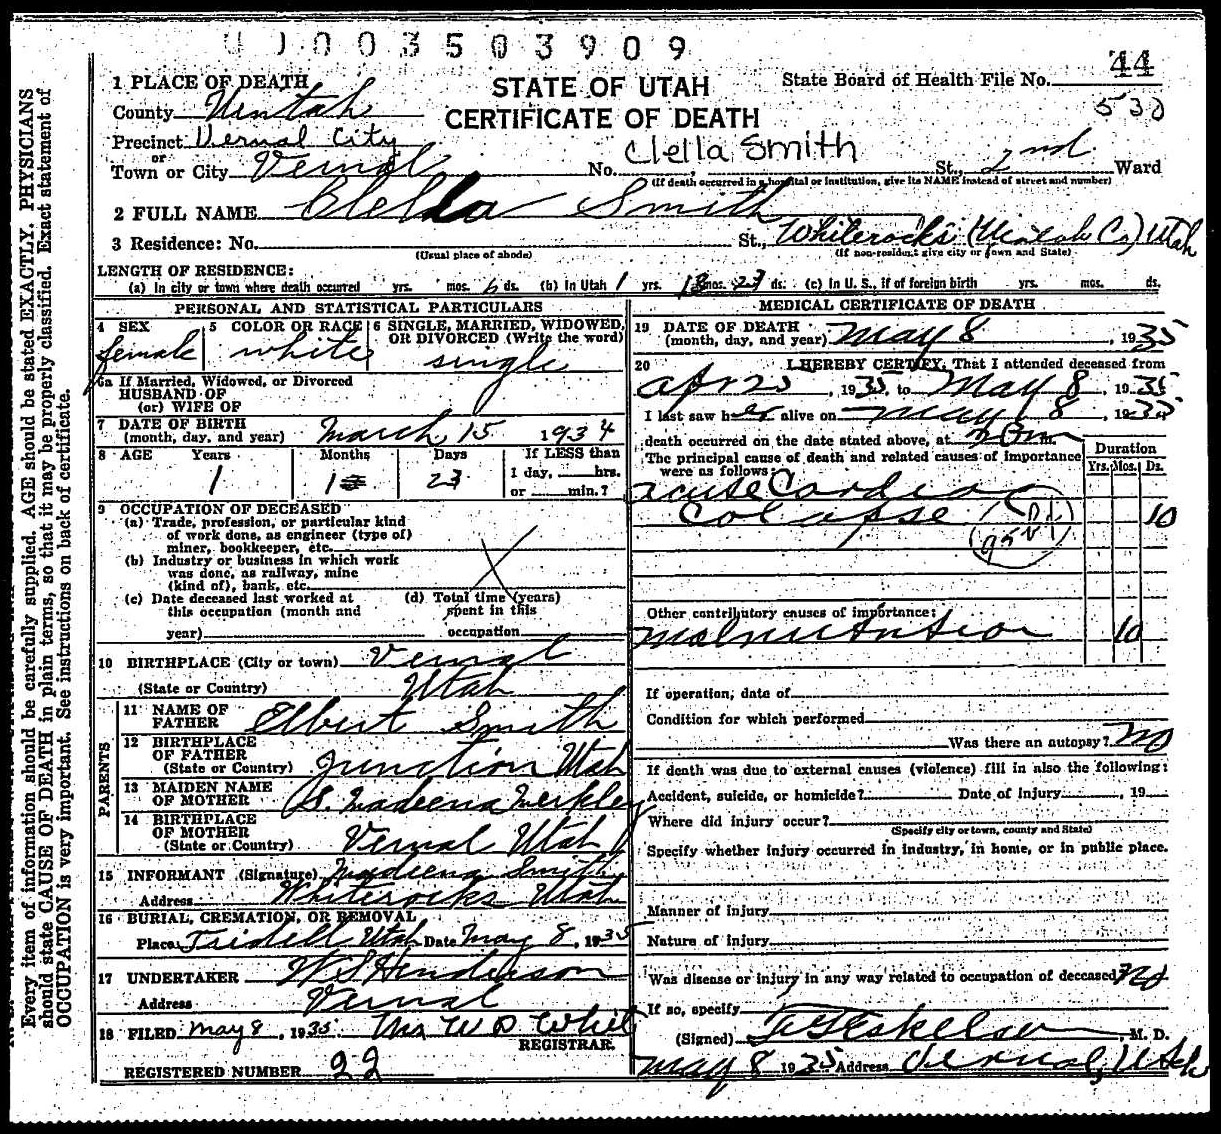 0003503909
1 PLACE OF DEATH
STATE OF UTAH
State Board of Health File No. 44
County Uintah
CERTIFICATE OF DEATH
530
Precinct Vernal City
or
Clella Smith
Town or City Vernal No. St., 2nd Ward
(If death occurred in a hospital or institution, give its NAME instead of street and number)
2 FULL NAME Clella Smith
3 Residence: No. St., Whiterocks (Uintah Co) Utah
(Usual place of abode) (If non-resident give city or town and State)
LENGTH OF RESIDENCE:
(a) In city or town where death occurred yrs. mos. 6 ds. (b) In Utah 1 yrs. mos. 23 ds. (c) In U. S., if of foreign birth yrs. mos. ds.
PERSONAL AND STATISTICAL PARTICULARS
4 SEX 5 COLOR OR RACE 6 SINGLE, MARRIED, WIDOWED, OR DIVORCED (Write the word)
female white single
6a If Married, Widowed, or Divorced
HUSBAND OF
(or) WIFE OF
7 DATE OF BIRTH
(month, day, and year) March 15 1934
8 AGE Years Months Days If LESS than
1 1 23 1 day, hrs.
or min.?
9 OCCUPATION OF DECEASED
(a) Trade, profession, or particular kind
of work done, as engineer (type of)
miner, bookkeeper, etc.
(b) Industry or business in which work
was done, as railway, mine
(kind of), bank, etc.
(c) Date deceased last worked at (d) Total time (years)
this occupation (month and spent in this
year) occupation
10 BIRTHPLACE (City or town) Vernal
(State or Country) Utah
PARENTS
11 NAME OF
FATHER Elbert Smith
12 BIRTHPLACE
OF FATHER
(State or Country) Junction Utah
13 MAIDEN NAME
OF MOTHER S. Madeena Merkley
14 BIRTHPLACE
OF MOTHER
(State or Country) Vernal Utah
15 INFORMANT (Signature) Madeena Smith
Address Whiterocks Utah
16 BURIAL, CREMATION, OR REMOVAL
Place Tridell Utah Date May 8, 1935
17 UNDERTAKER W S Henderson
Address Vernal
18 FILED May 8, 1935 Mrs W D
REGISTRAR.
REGISTERED NUMBER 22
MEDICAL CERTIFICATE OF DEATH
19 DATE OF DEATH
(month, day, and year) May 8, 1935
20 I HEREBY CERTIFY, That I attended deceased from
Apr 25, 1935, to May 8, 1935
I last saw her alive on May 8, 1935,
death occurred on the date stated above, at m.
The principal cause of death and related causes of importance
were as follows:
Duration
Yrs. Mos. Ds.
acute Cardiac
Colapse 10
Other contributory causes of importance:
malnutrition 10
If operation, date of
Condition for which performed
Was there an autopsy? No
If death was due to external causes (violence) fill in also the following:
Accident, suicide, or homicide? Date of injury , 19
Where did injury occur?
(Specify city or town, county and State)
Specify whether injury occurred in industry, in home, or in public place.
Manner of injury
Nature of injury
Was disease or injury in any way related to occupation of deceased? No
If so, specify
(Signed) Eskelson, M. D.
May 8 1935 Address Vernal, Utah
Every item of information should be carefully supplied. AGE should be stated EXACTLY. PHYSICIANS
should state CAUSE OF DEATH in plain terms, so that it may be properly classified. Exact statement of
OCCUPATION is very important. See instructions on back of certificate.